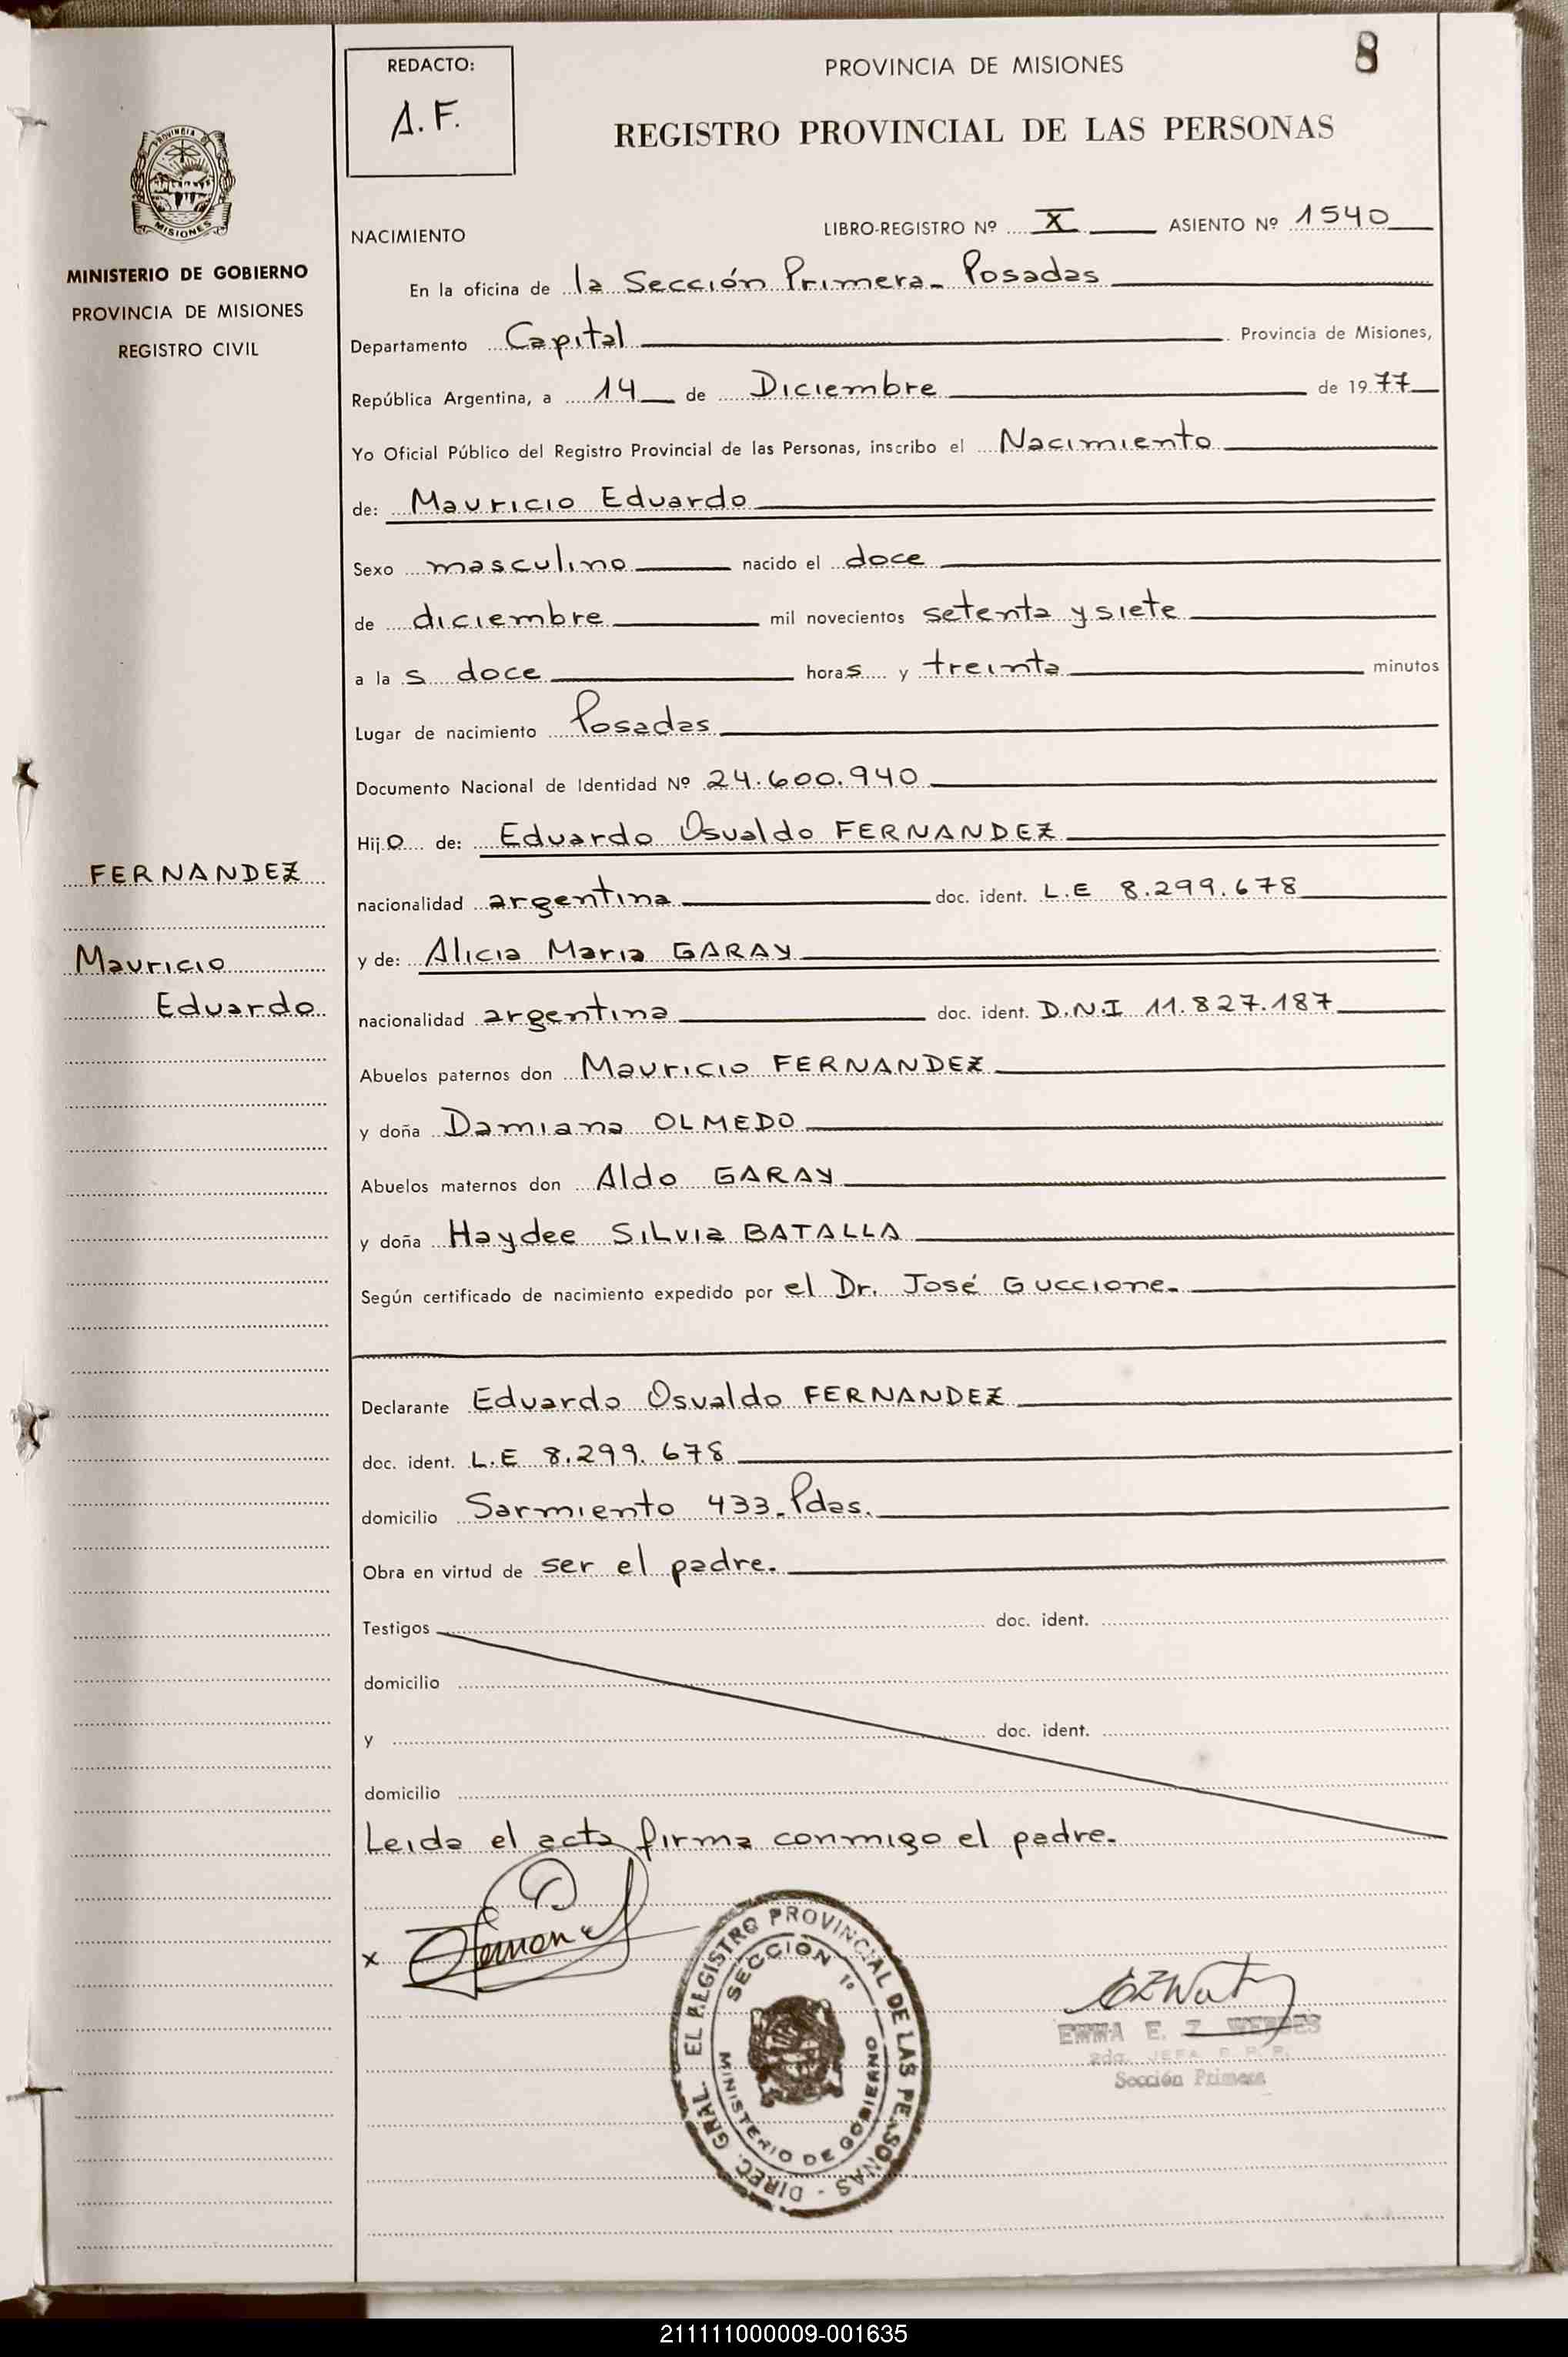 8
REDACTO:
A.F.
PROVINCIA DE MISIONES
REGISTRO PROVINCIAL DE LAS PERSONAS
MISIONES
MINISTERIO DE GOBIERNO
PROVINCIA DE MISIONES
REGISTRO CIVIL
NACIMIENTO
LIBRO-REGISTRO Nº X ASIENTO Nº 1540
En la oficina de la Sección Primera - Posadas
Departamento Capital Provincia de Misiones,
República Argentina, a 14 de Diciembre de 1977
Yo Oficial Público del Registro Provincial de las Personas, inscribo el Nacimiento
de: Mauricio Eduardo
Sexo masculino nacido el doce
de diciembre mil novecientos setenta y siete
a la s doce horas y treinta minutos
Lugar de nacimiento Posadas
Documento Nacional de Identidad Nº 24.600.940
Hijo de: Eduardo Osvaldo FERNANDEZ
FERNANDEZ
nacionalidad argentina doc. ident. L.E 8.299.678
Mauricio
y de: Alicia Maria GARAY
Eduardo
nacionalidad argentina doc. ident. D.N.I 11.827.187
Abuelos paternos don Mauricio FERNANDEZ
y doña Damiana OLMEDO
Abuelos maternos don Aldo GARAY
y doña Haydee Silvia BATALLA
Según certificado de nacimiento expedido por el Dr. José Guccione.
Declarante Eduardo Osvaldo FERNANDEZ
doc. ident. L.E 8.299.678
domicilio Sarmiento 433. Pdas.
Obra en virtud de ser el padre.
Testigos doc. ident.
domicilio
y doc. ident.
domicilio
Leida el acta firma conmigo el padre.
x
DIREC. GRAL. EL REGISTRO PROVINCIAL DE LAS PERSONAS
SECCION 1º
MINISTERIO DE GOBIERNO
EMMA E. Z.
Sección Primera
211111000009-001635